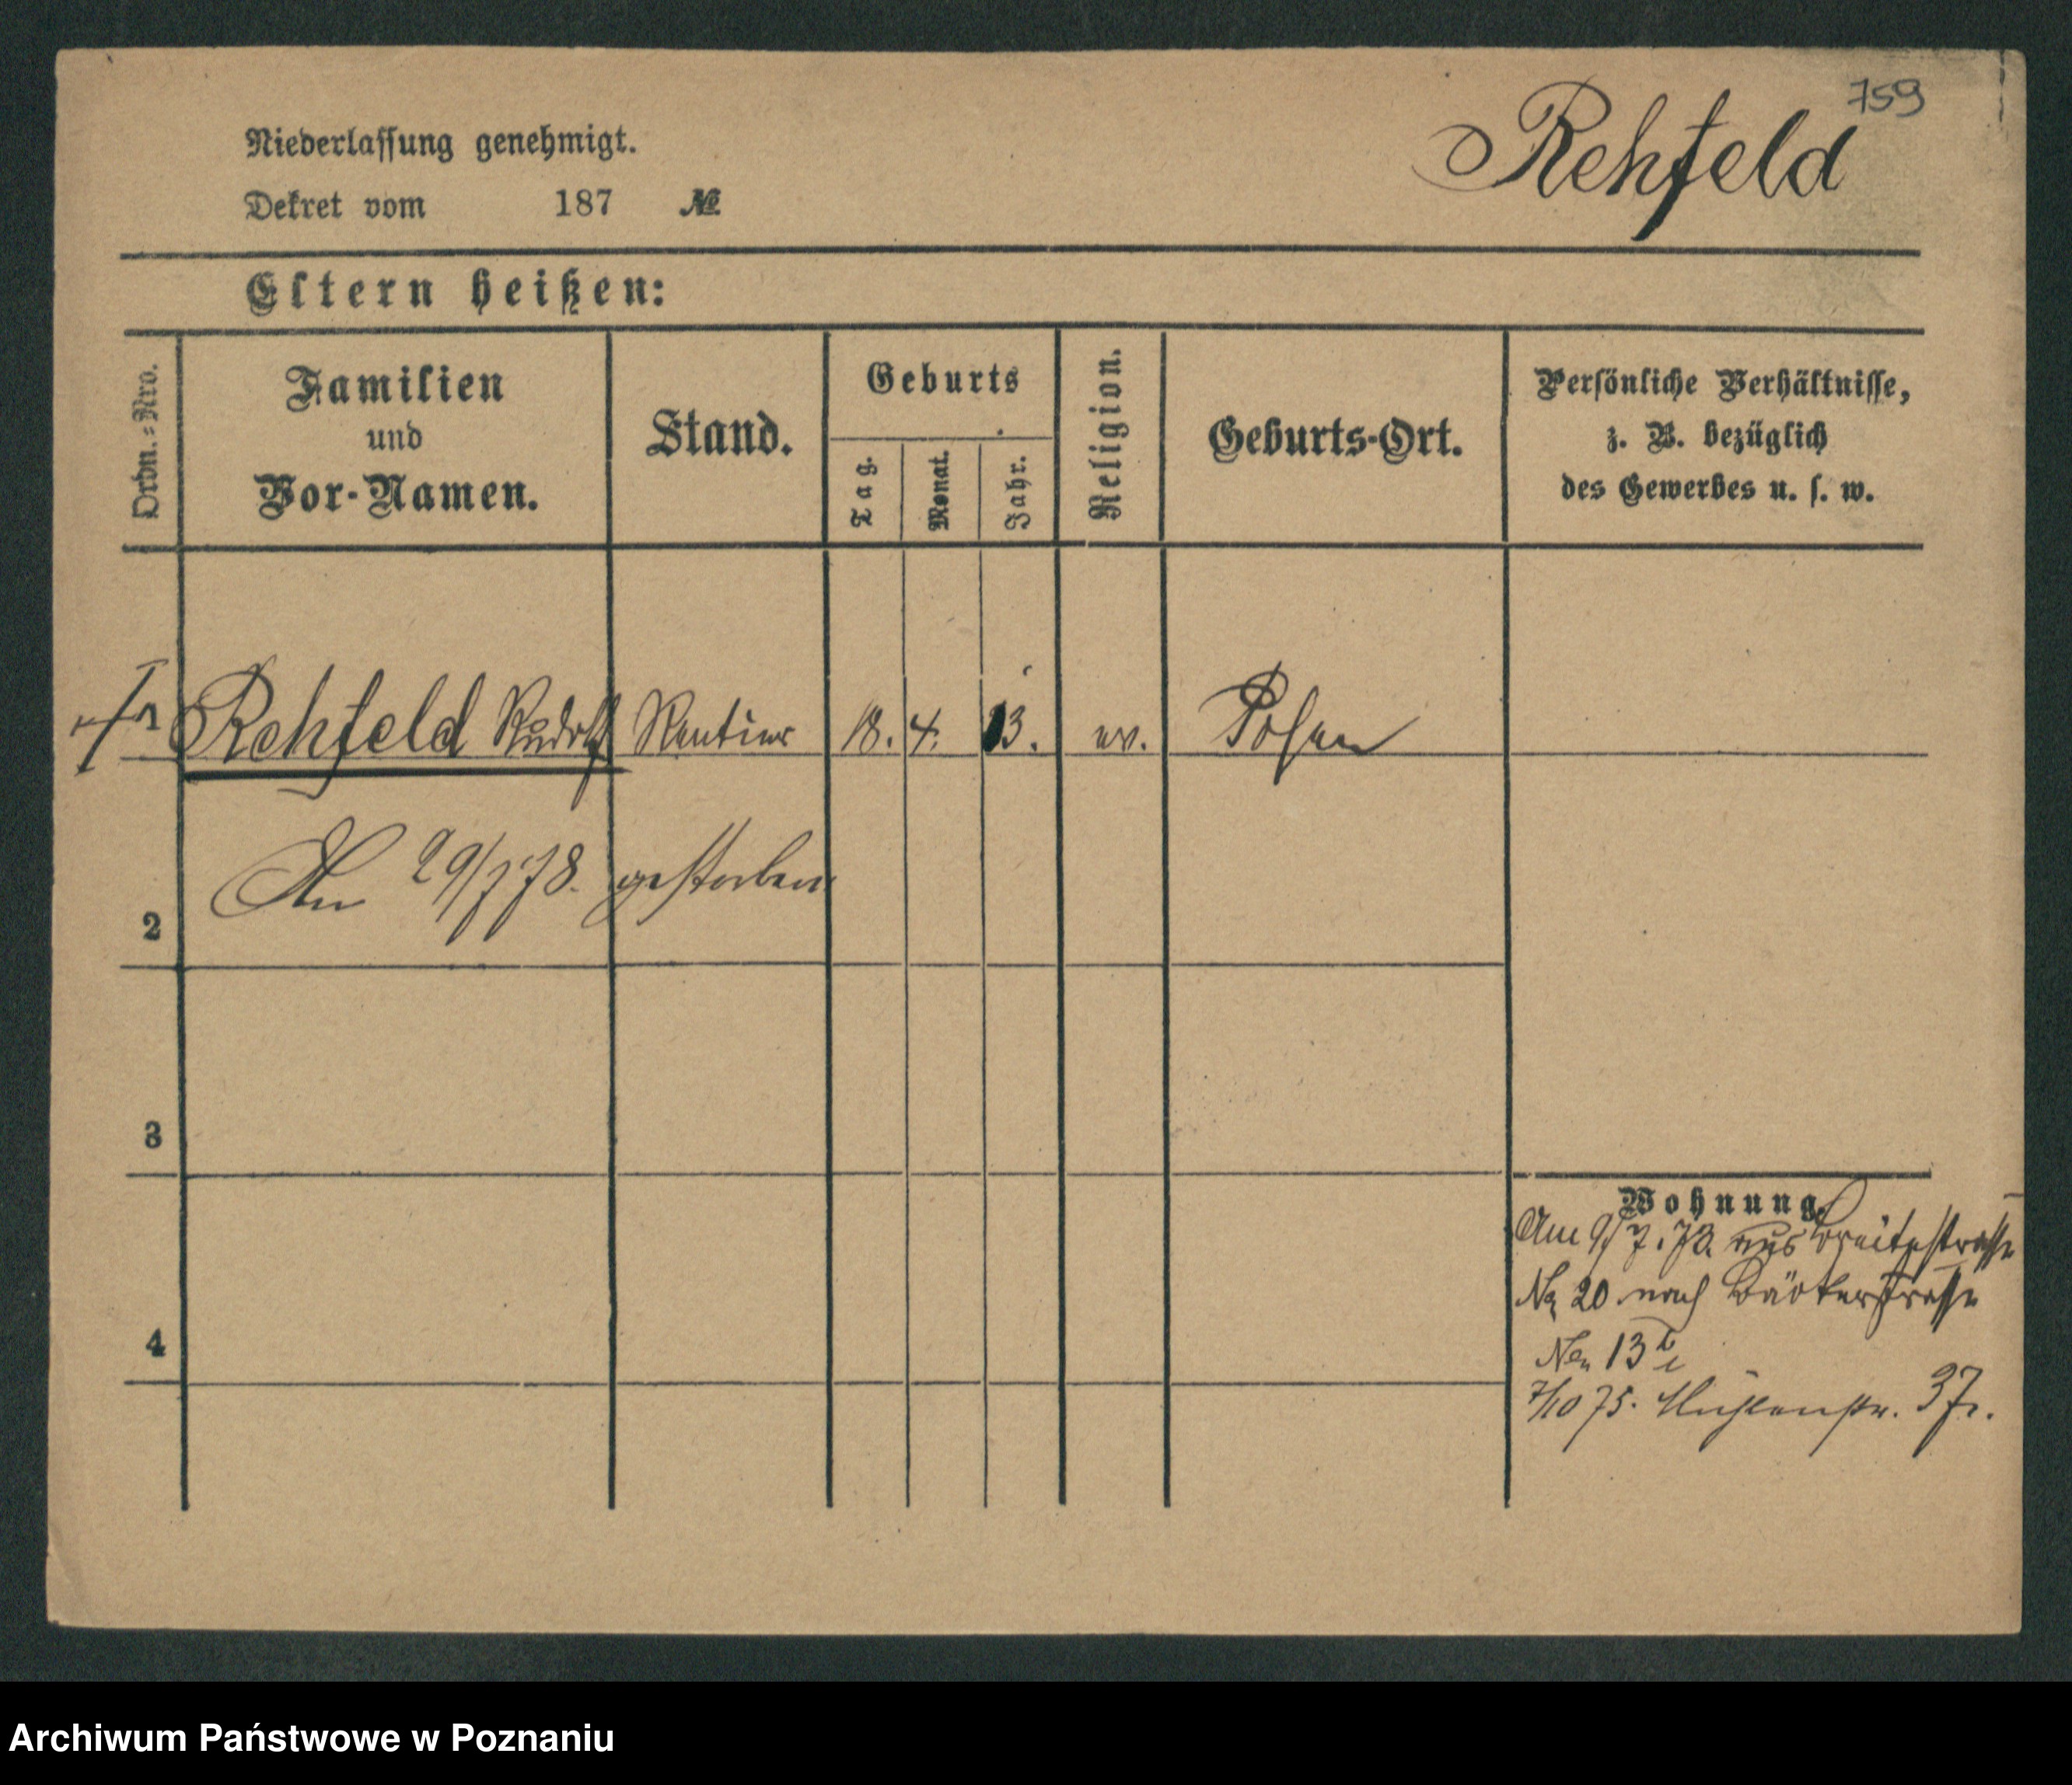 759
Rehfeld
Niederlassung genehmigt.
Dekret vom 187 №
Eltern heißen:
Ordn.=Nro.
Familien
und
Vor-Namen.
Stand.
Geburts
Tag.
Monat.
Jahr.
Religion.
Geburts-Ort.
Persönliche Verhältnisse,
z. B. bezüglich
des Gewerbes u. s. w.
1 Rehfeld Rudolf Rentier 18. 4. 13. ev. Posen
Am 29/7 78. gestorben
2
3
4
Wohnung.
Am 9/7. 73. aus Breitestrasse
No 20 nach Bäckerstrasse
No 13
7/10 75. Mühlenstr. 37.
Archiwum Państwowe w Poznaniu